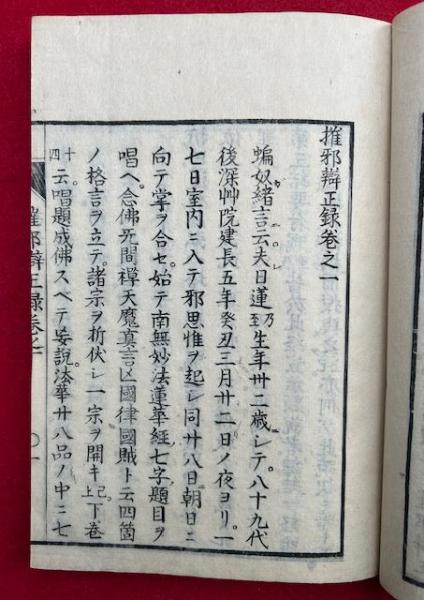 摧邪辯正録卷之一
蝙奴緒言云夫日蓮乃至生年卅二歲ニシテ八十九代
後深艸院建長五年癸丑三月廿二日ノ夜ヨリ一
七日室内ニ入テ邪思惟ヲ起シ同廿八日朝日ニ
向テ掌ヲ合セ始テ南無妙法蓮華經七字題目ヲ
唱ヘ念佛无間禪天魔真言亡國律國賊ト云四箇
ノ格言ヲ立テ諸宗ヲ折伏シ一宗ヲ開キ已上下卷
十四云唱題成佛スベテ妄說法華廿八品ノ中ニ七
摧邪辯正録卷之一
〇一